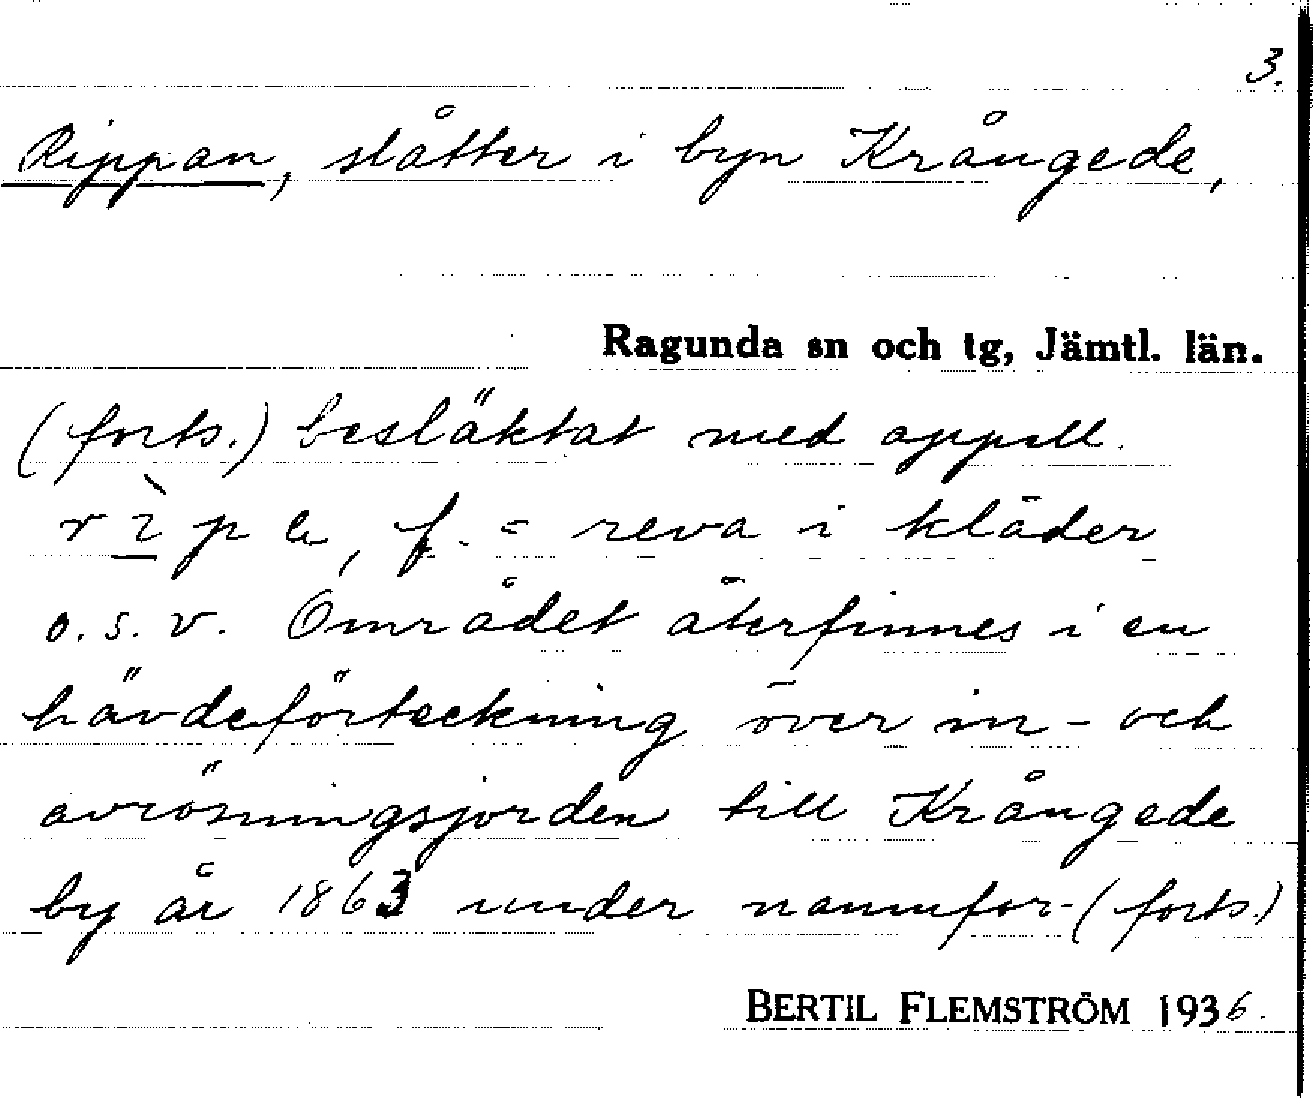 3.
Rippan, slåtter i byn Krångede,
Ragunda sn och tg, Jämtl. län.
(forts.) besläktat med appell.
f. = reva i kläder
o.s.v. Området återfinnes i en
hävdeförteckning över in- och
avrösningsjorden till Krångede
by år 1863 under namnfor- (forts.)
BERTIL FLEMSTRÖM 1936.